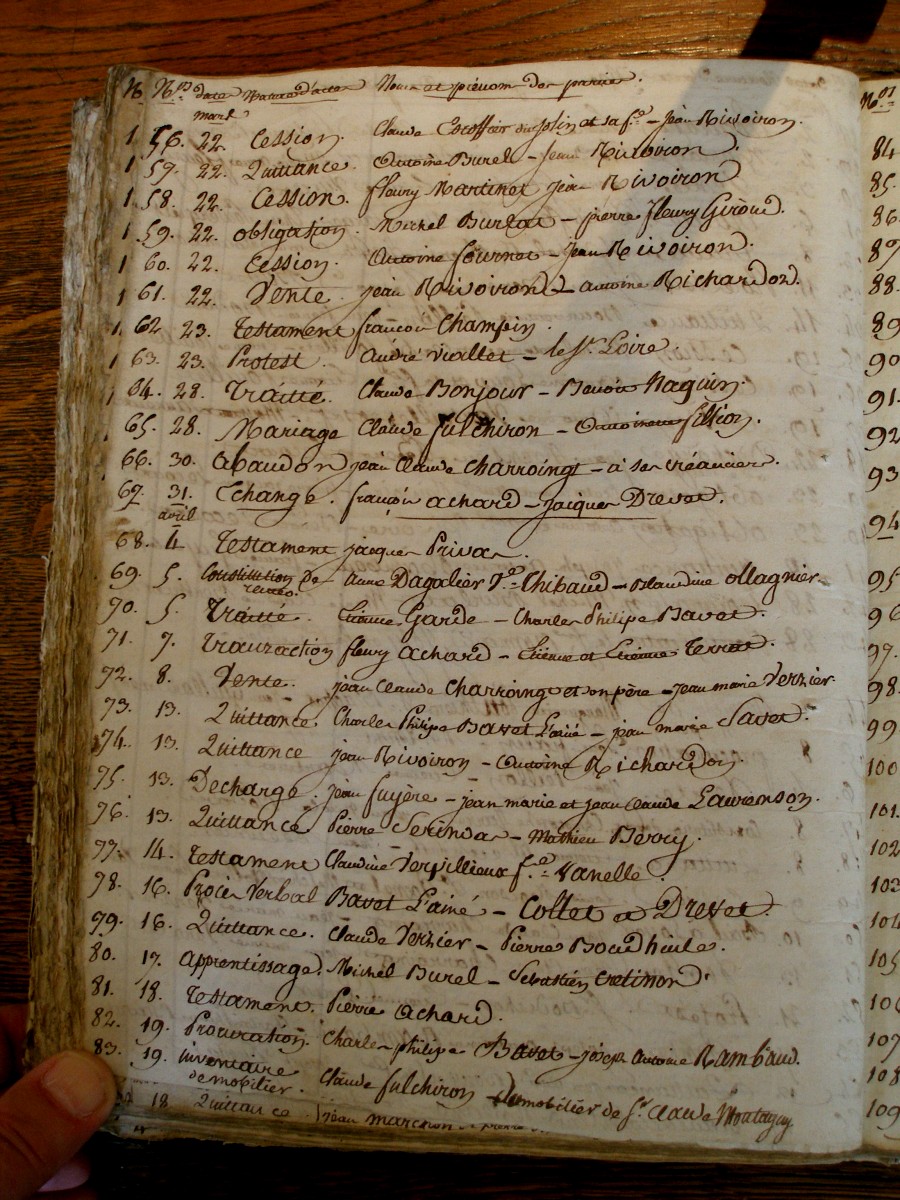 No. Nos date Nature d'actes Noms et prénom des parties.
mars
1 56. 22 Cession. Claude Escoffier dit Jolin et sa fe - jean Rivoiron.
1 59. 22. Quittance. Antoine Burel - Jean Rivoiron.
1 58. 22. Cession. fleury Martinet jean Rivoiron
1 59. 22. obligation. Michel Burlat - pierre fleury Giroud.
1 60. 22. Cession. Antoine fournet - Jean Rivoiron.
1 61. 22. Vente. jean Rivoiron - antoine Richardon.
1 62 23. Testament françois Champin.
1 63. 23. Protest. André Viallet - le Sr. Loire.
1 64. 28. Traitté. Claude Bonjour - Benoit Naquin.
65. 28. Mariage Claude fulchiron - Antoinette fillion.
66. 30. abandon jean Claude Charroingt - à ses créanciers.
67. 31. Echange. françois achard - jacques Drevet.
avril
68. 4 Testament jacques Privas.
69. 5. Constitution de rente. Anne Dagalier Ve Thibaud - Blandine ollagnier.
70. 5. Traitté. Etienne Garde - Charles Philipe Bavet.
71. 7. transaction fleury achard - Etienne et Etienne Terrat.
72. 8. Vente. jean Claude Charroingt et son père - jean marie Vernier.
73. 13. Quittance. Charles Philipe Bavet L'ainé - jean marie Savet.
74. 13. Quittance jean Rivoiron - antoine Richardon.
75. 13. Decharge. jean fuyère - jean marie et jean claude Laurenson.
76. 13. Quittance Pierre - Mathieu Berry.
77. 14. Testament Claudine Verpillieux fe. Vanelle.
78. 16. Procès Verbal Bavet L'ainé - Collet et Drevet.
79. 16. Quittance. Claude Vernier - Pierre Boudhuile.
80. 17. apprentissage. Michel Burel - Sébastien
81. 18. Testament. Pierre Achard.
82. 19. Procuration. Charles philipe Bavet - joseph Antoine Rambaud.
83. 19. inventaire de mobilier. Claude fulchiron - du mobilier de Sr. Claude Montagny.
18 Quittance. jean marchon
No.
84
85.
86
87
88.
89
90
91.
92
93
94
95
96
97.
98.
99
100
101.
102
103
104
105
106
107
108
109